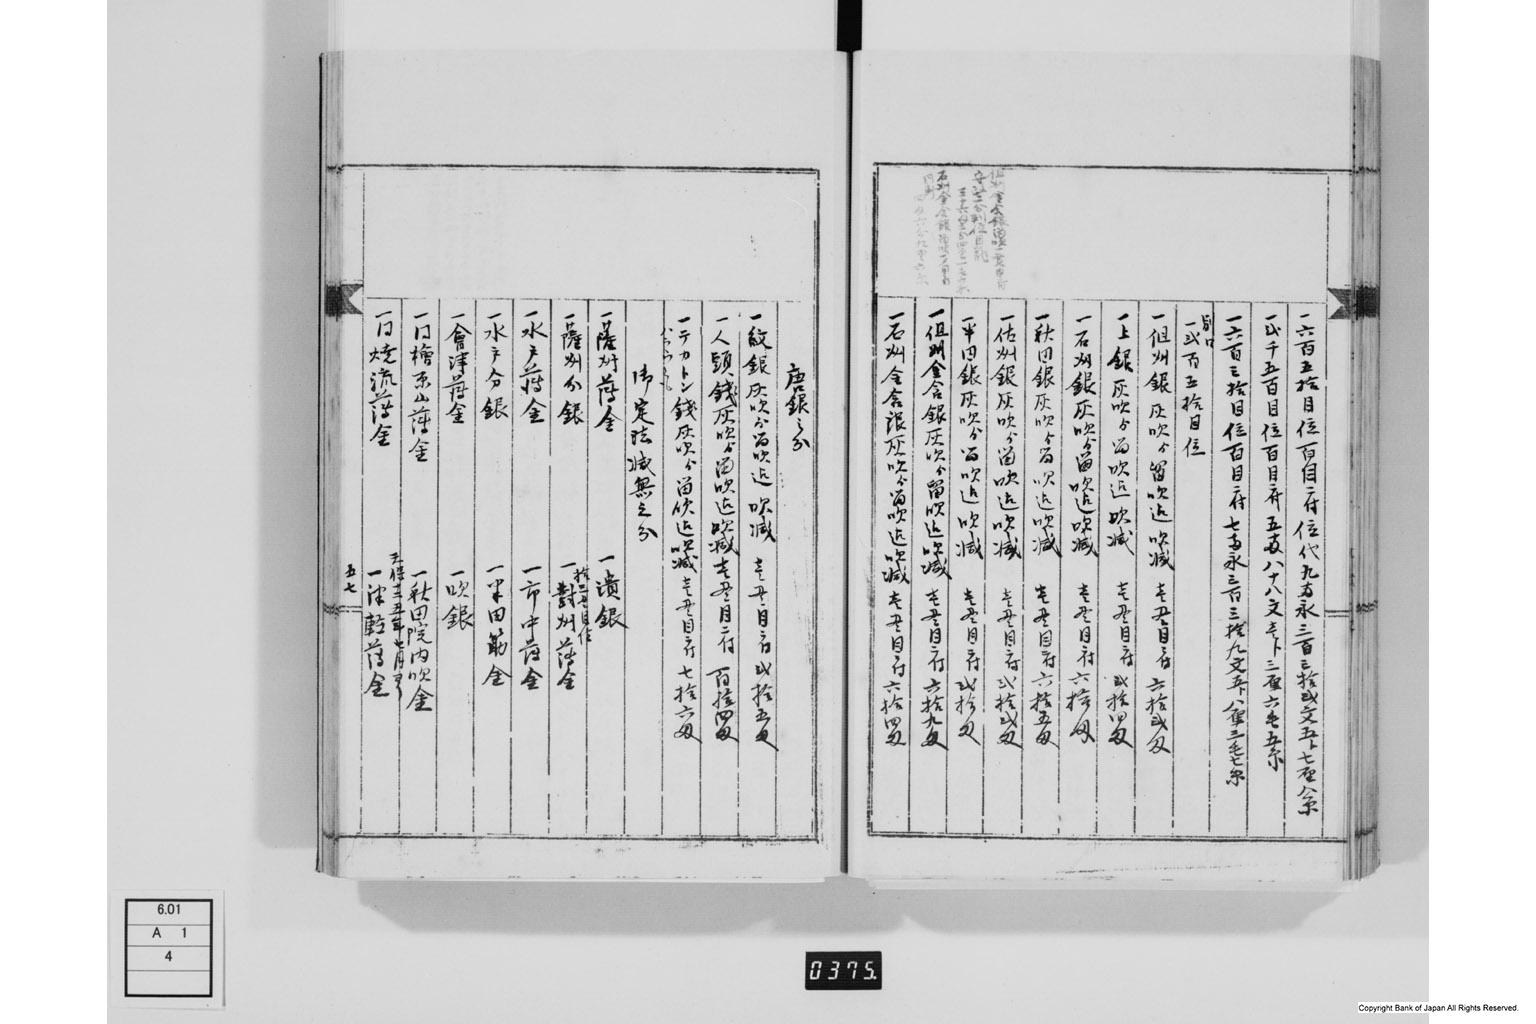 一六百五拾目位百目ニ付位代九両永三百三拾弐文五分七厘八糸
一弐千五百目位百目ニ付五両八十八文壱分三厘六毛五糸
一六百三拾目位百目ニ付七両永三百三拾九文五分八厘三毛七糸
別口
一弐百五拾目位
一但州銀灰吹分留吹迄吹減 壱貫目ニ付六拾弐匁
一上銀灰吹分留吹迄吹減 壱貫目ニ付弐拾四匁
一石州銀灰吹分留吹迄吹減 壱貫目ニ付六拾匁
一秋田銀灰吹分留吹迄吹減 壱貫目ニ付六拾五匁
一佐州銀灰吹分留吹迄吹減 壱貫目ニ付弐拾弐匁
一半田銀灰吹分留吹迄吹減 壱貫目ニ付弐拾匁
一但州金含銀灰吹分留吹迄吹減 壱貫目ニ付六拾九匁
一石州金含銀灰吹分留吹迄吹減 壱貫目ニ付六拾四匁
唐銀之分
一紋銀灰吹分留吹迄吹減 壱貫目ニ付弐拾五匁
一人頭銭灰吹分留吹迄吹減 壱貫目ニ付百拾四匁
一テカトン銭灰吹分留吹迄吹減 壱貫目ニ付七拾六匁
御定法減無之分
一薩州薄金 一潰銀
一薩州分銀 一対州薄金
一水戸薄金 一市中薄金
一水戸分銀 一半田筋金
一會津薄金 一吹銀
一同檜原山薄金 一秋田院内吹金
一同焼流薄金 一津軽薄金
五七
6.01
A 1
4
0375.
Copyright Bank of Japan All Rights Reserved.